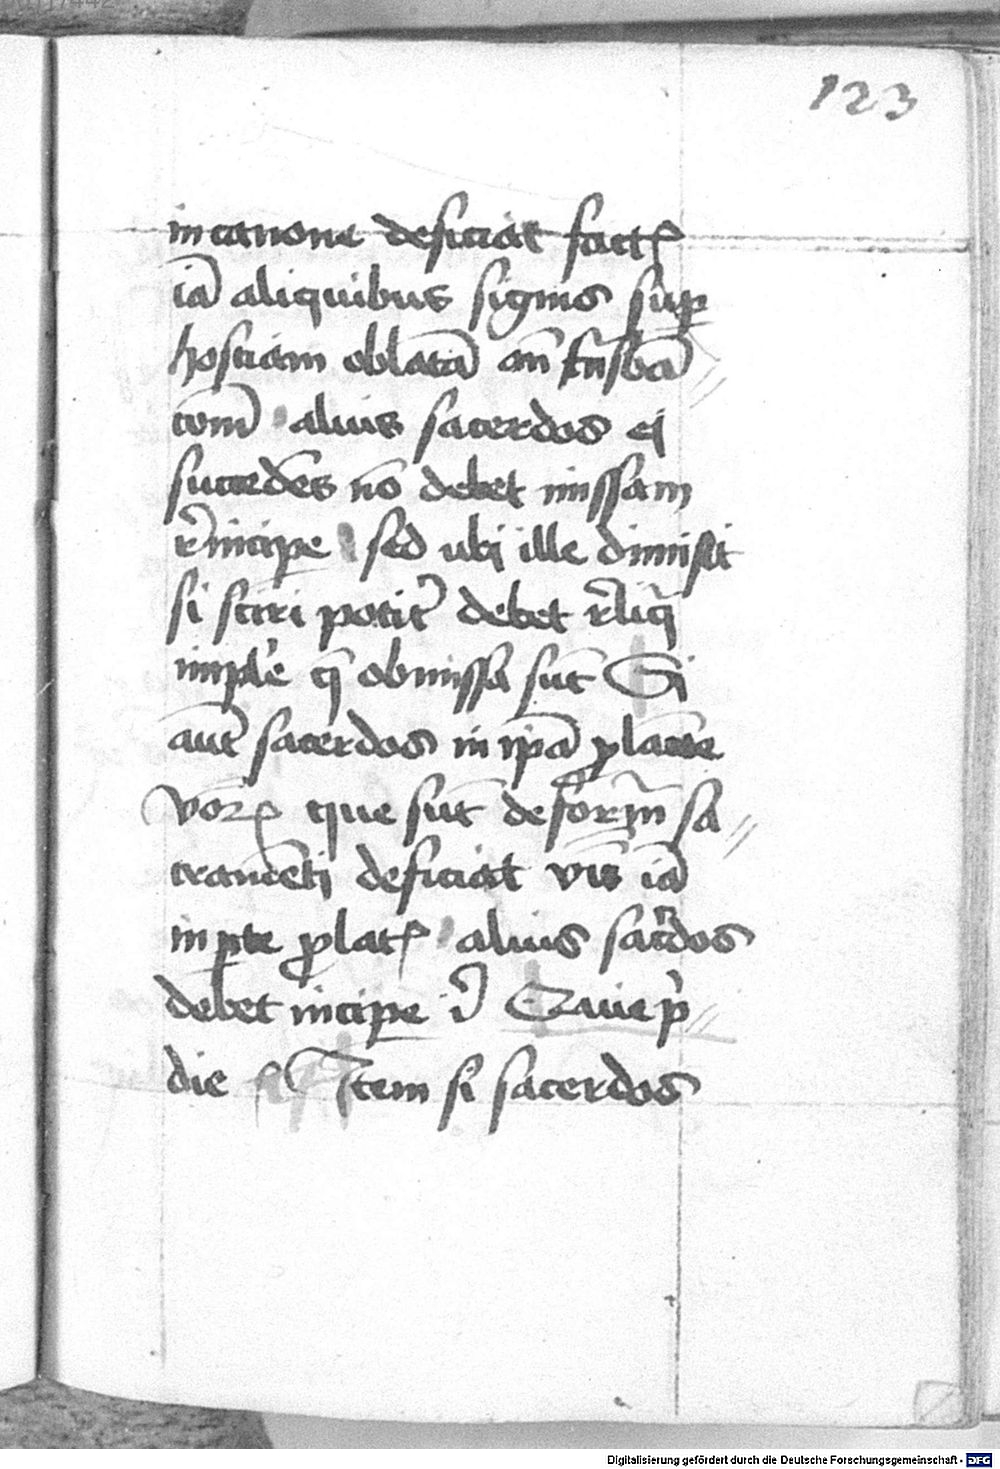 123
in canone deficiat factꝭ
iā aliquibus signis sup̱
hostiam oblatā an̄
com̄ alius sacerdos ej
succedēs nō debet missam
r̄incipe sed ubj ille dimisit
si sciri potit᷑ debet r̄liq̄
imple᷑ q̄ obmissa sūt Si
aūt sacerdos in ip̄a ꝓlac̄oe
v̄orꝭ que sūt de form̄ sa
cramētj deficiat v̄is iā
in ꝑte ꝓlatꝭ alius sac̄dos
debet incipe ī Qui p̄
die Item si sacerdos
Digitalisierung gefördert durch die Deutsche Forschungsgemeinschaft - DFG